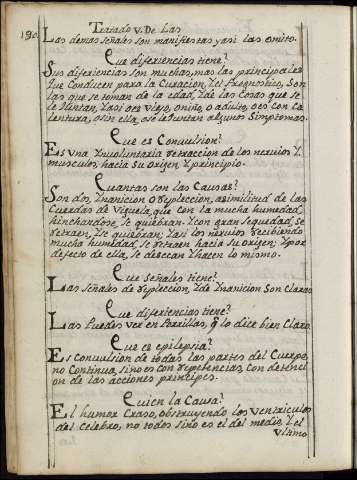 190.
Tratado V. De Las
Las demas señales son manifiestas yasi las omito.
Que diferiencias tiene?
Sus diferiencias son muchas, mas las principales
que Conducen para la Curacion, Y el Prognostico, Son
las que se toman de la edad, Y de las Cosas que se
le Iuntan, Y asi oes viejo, oniño, o adulto, oes con Ca
lentura, osin ella, ose le Iuntan algunos Simptomas.
Que es Convulsion?
Es Una Ynvoluntaria retraccion de los nervios Y
musculos, hacia Su Origen Y principio.
Quantas son las Causas?
Son dos, Ynanicion O Repleccion, asimilitud de las
Cuerdas de Viguela, que con la mucha humedad,
hinchandose, Se quiebran. Y con gran Sequedad, Se
retraen, Y se quiebran; Y asi los nervios recibiendo
mucha humedad, Se retraen hacia Su Origen; Y por
defecto de ella, Se desecan Y hacen lo mismo.
Que Señales tiene?
Las Señales de repleccion, Y de Ynanicion Son Claras
Que diferiencias tiene?
Las Puedes ver en Porrillas, q lo dice bien Claro.
Que es epilepsia?
Es Convulsion de todas las partes del Cuerpo,
no Continua, Sino es con repetencias, Con detenci
on de las acciones principes.
Quien la Causa?
El humor Craso, Obstruyendo los Ventriculos
del Celebro, no todos Sino es el del medio, Y el
Ultimo